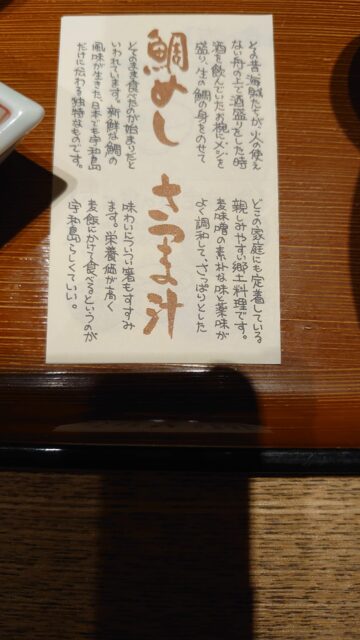 鯛めし
その昔、海賊たちが火の使え
ない舟の上で酒盛りをした時
酒を飲んでいたお椀にメシを
盛り、生の鯛の身をのせて
そのまま食べたのが始まりだと
いわれています。新鮮な鯛の
風味が生きた、日本でも宇和島
だけに伝わる独特なものです。
さつま汁
どこの家庭にも定着している
親しみやすい郷土料理です。
麦味噌の素朴な味と薬味が
よく調和して、さっぱりとした
味わいについつい箸もすすみ
ます。栄養価が高く
麦飯にかけて食べるというのが
宇和島らしくていい。